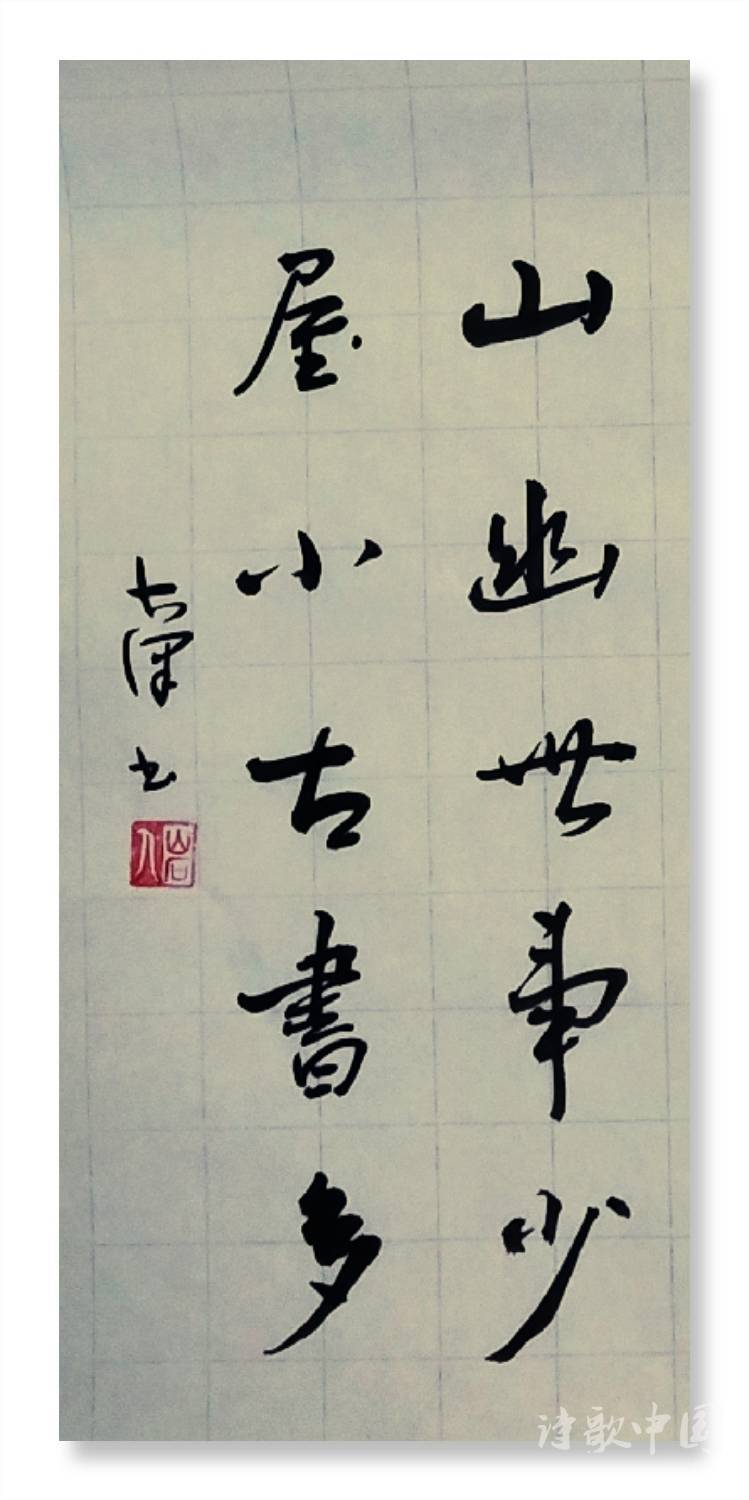 山幽世事少
屋小古書多
书
诗歌中国